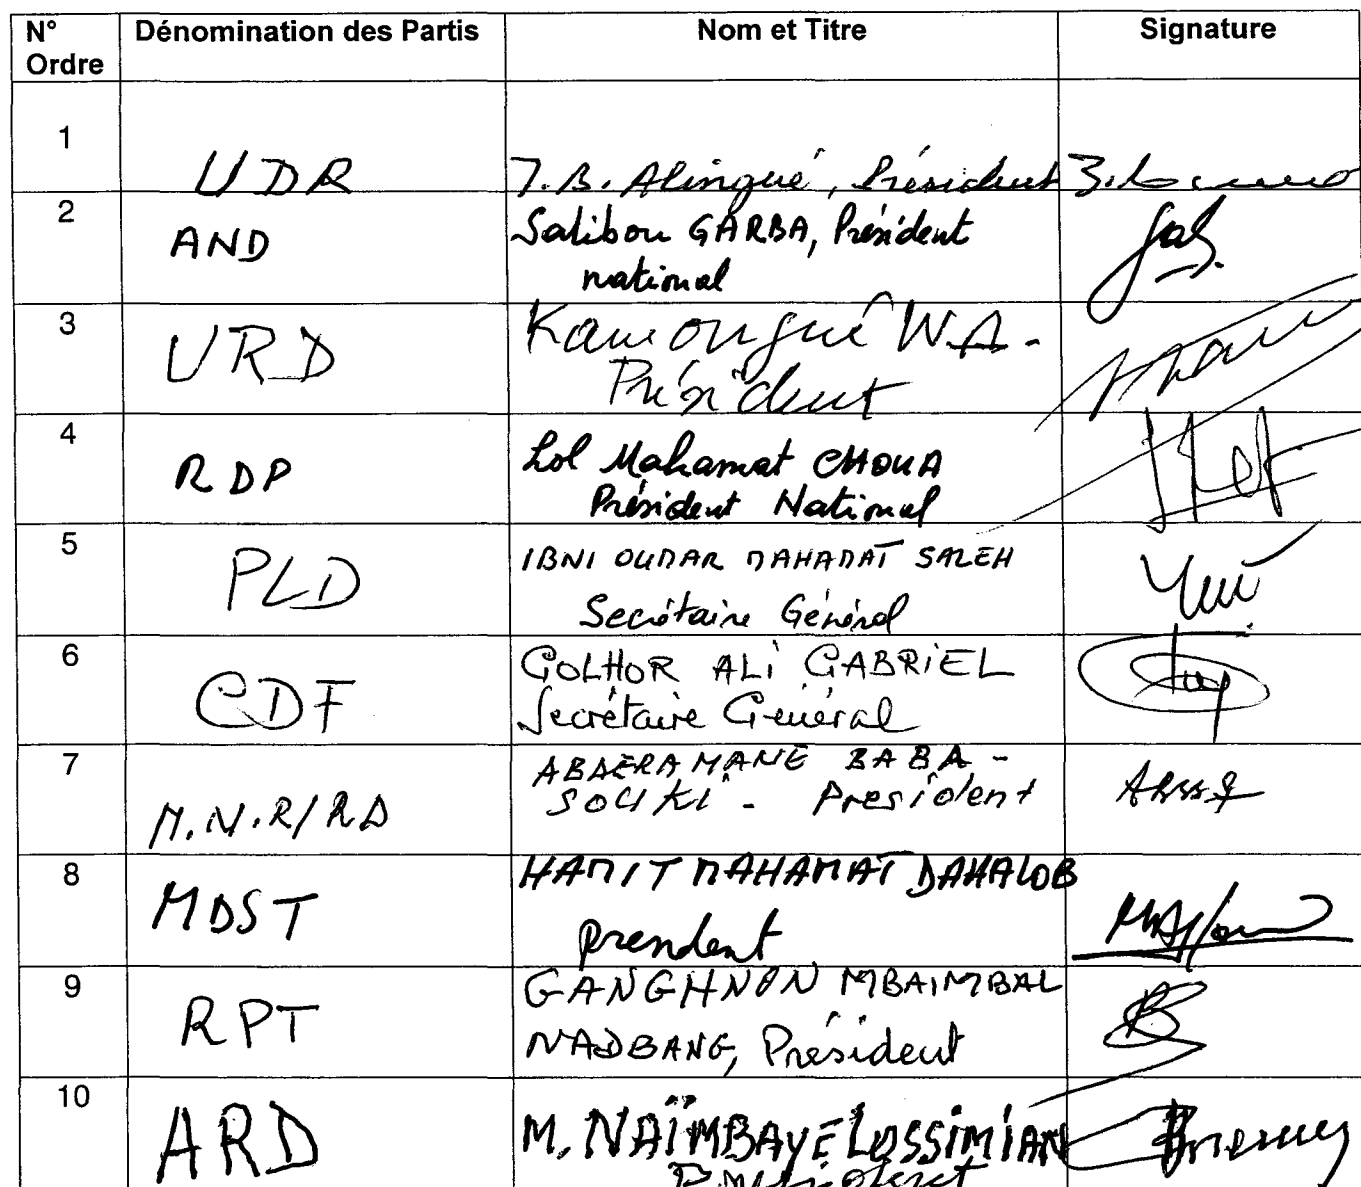 N° Ordre Dénomination des Partis Nom et Titre Signature
1 UDR J.B. Alingué, Président
2 AND Salibou GARBA, Président
national
3 URD Kamougué W.A.
Président
4 RDP Lol Mahamat CHOUA
Président National
5 PLD IBNI OUMAR MAHAMAT SALEH
Secrétaire Général
6 CDF GOLHOR ALI GABRIEL
Secrétaire Général
7 M.N.R/RD ABDERAMANE BABA -
SOUKI - President
8 MDST HAMIT MAHAMAT DAHALOB
President
9 RPT GANGHNON MBAIMBAL
NADBANG, Président
10 ARD M. NAÏMBAYE LOSSIMIAN
President